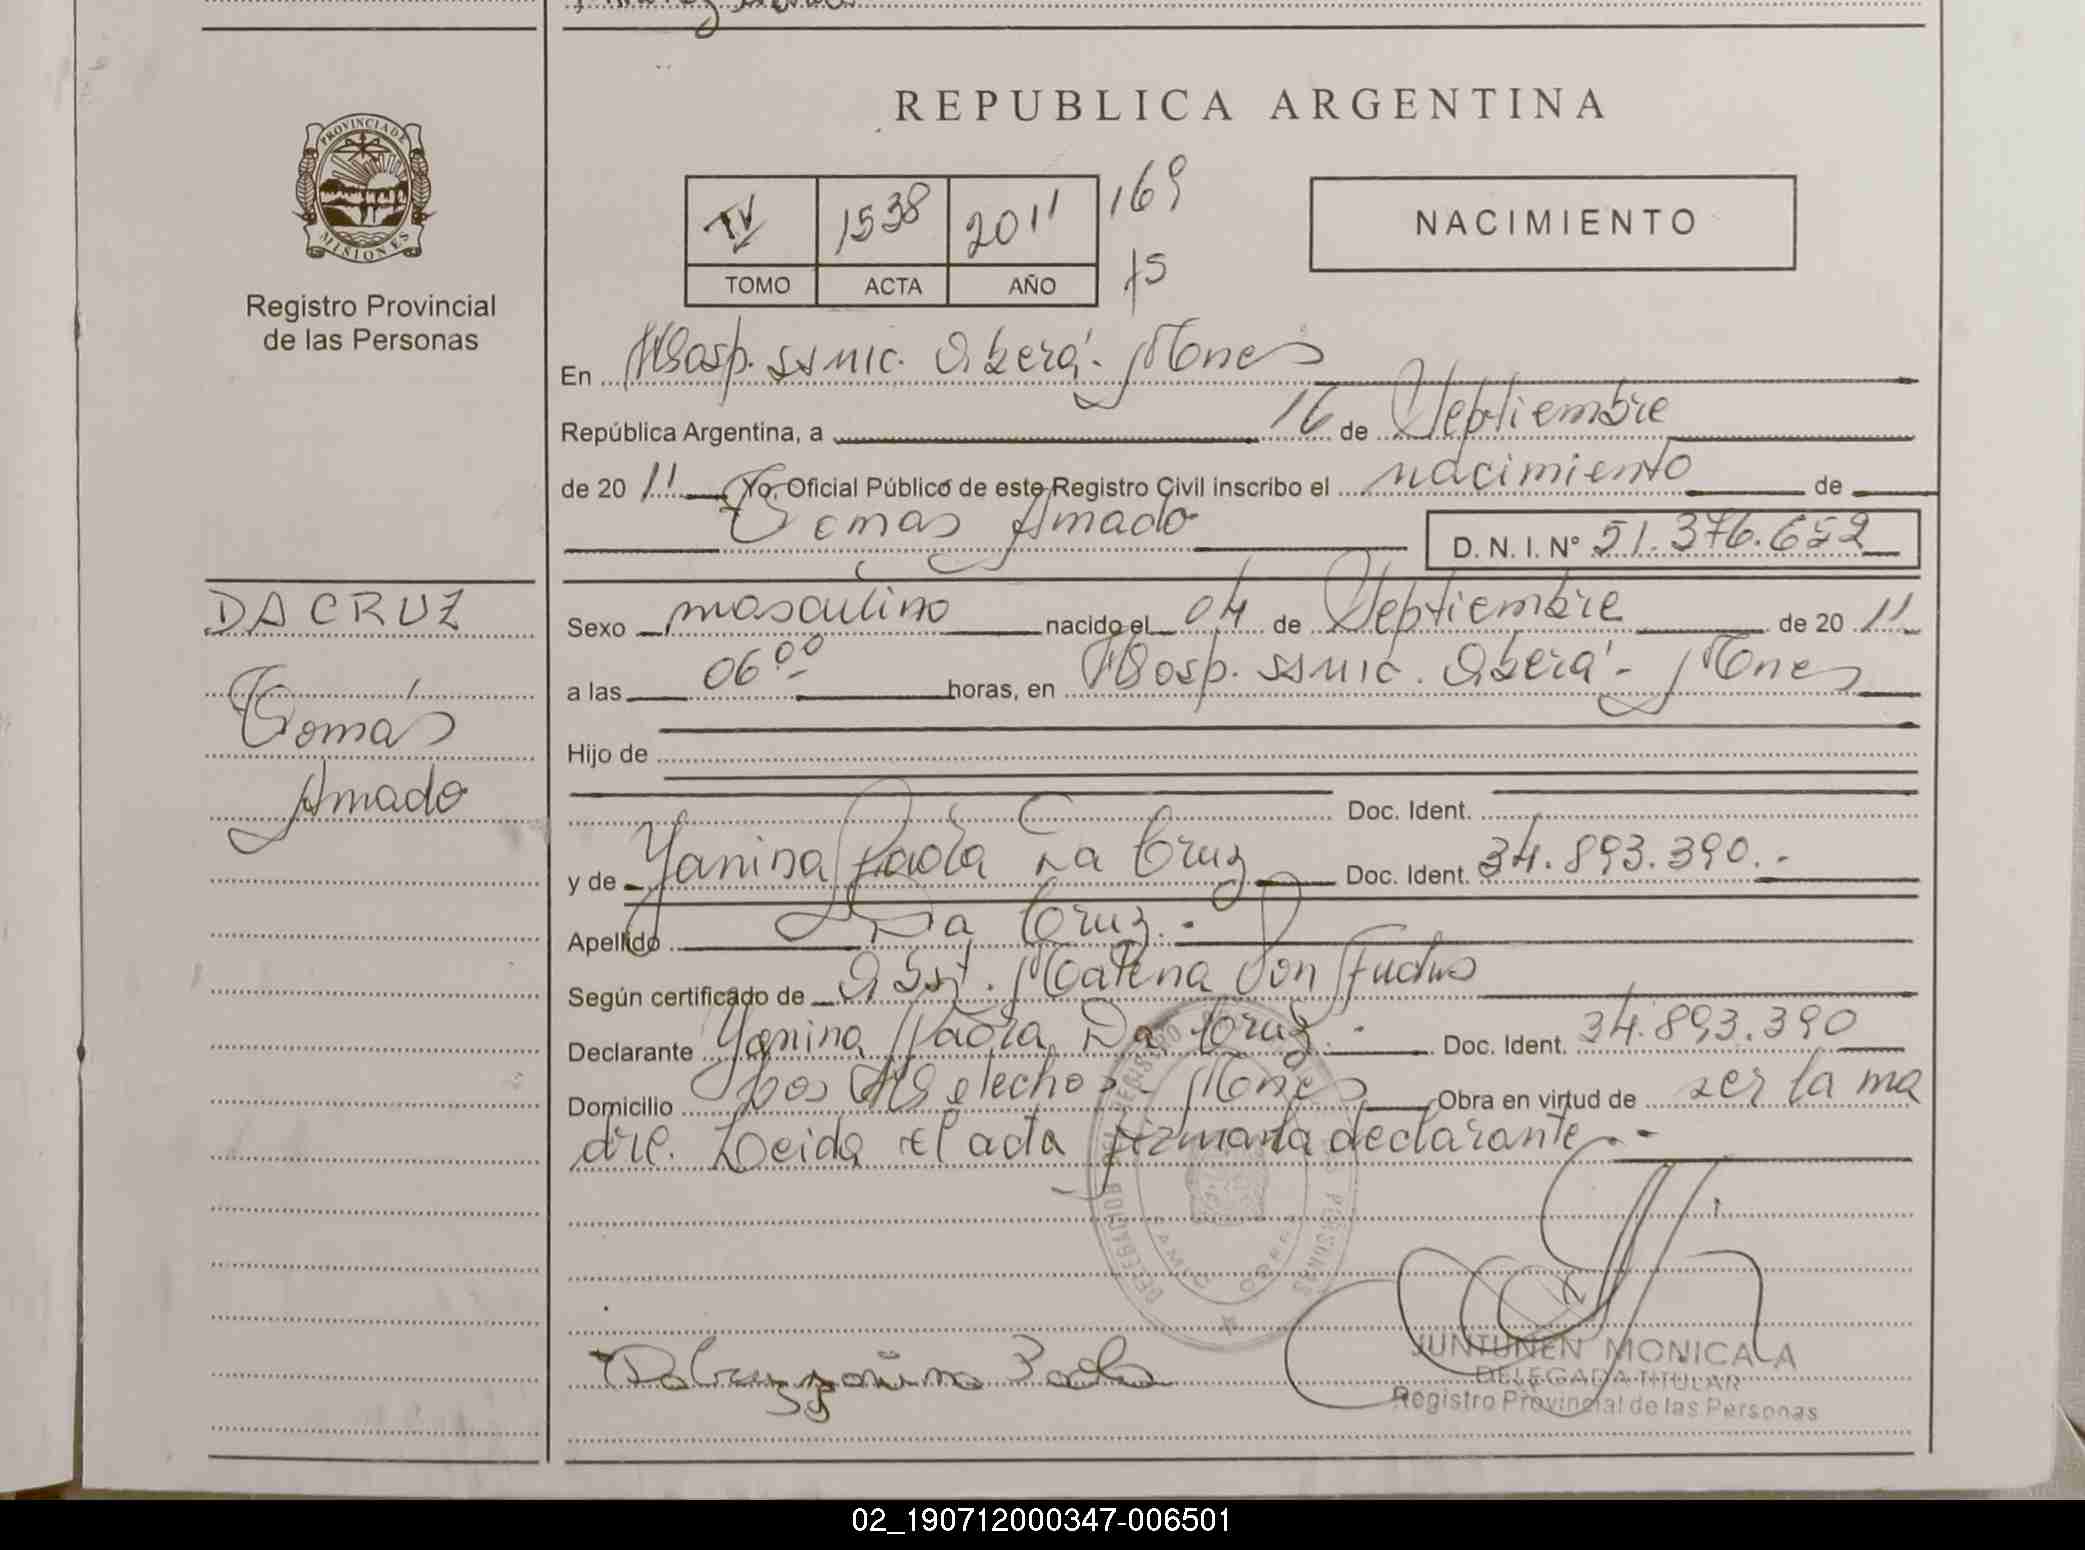 REPUBLICA ARGENTINA
PROVINCIA DE MISIONES
Registro Provincial
de las Personas
IV 1538 2011 169
TOMO ACTA AÑO 75
NACIMIENTO
En Hosp. SSMIC. Oberá - Mones
República Argentina, a 16 de Septiembre
de 20 11 Yo, Oficial Público de este Registro Civil inscribo el nacimiento de
Tomás Amado D. N. I. N° 51.376.652
DA CRUZ
Tomás
Amado
Sexo masculino nacido el 04 de Septiembre de 20 11
a las 06 00 horas, en Hosp. SSMIC. Oberá - Mones
Hijo de
Doc. Ident.
y de Yanina Paola Da Cruz Doc. Ident. 34.893.390.-
Apellido Da Cruz.-
Según certificado de Obst. Von
Declarante Yanina Paola Da Cruz.- Doc. Ident. 34.893.390
Domicilio Los Helechos - Mones Obra en virtud de ser la ma
dre. Leida el acta firma la declarante.-
Da Cruz Yanina Paola
JUNTUNEN MONICA A
DELEGADA TITULAR
Registro Provincial de las Personas
02_190712000347-006501